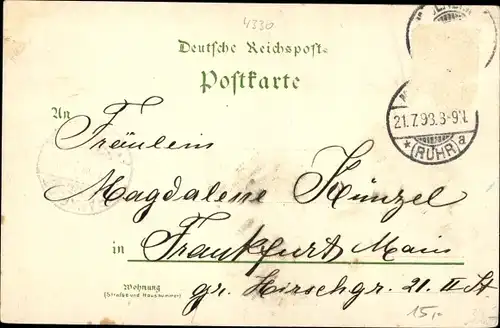 4330
Deutsche Reichspost
Postkarte
21.7.98.8-9V.
*(RUHR)a
An
Fräulein
Magdalene Künzel
in Frankfurt Main
Wohnung
(Straße und Hausnummer)
gr. Hirschgr. 21. II St
15,-